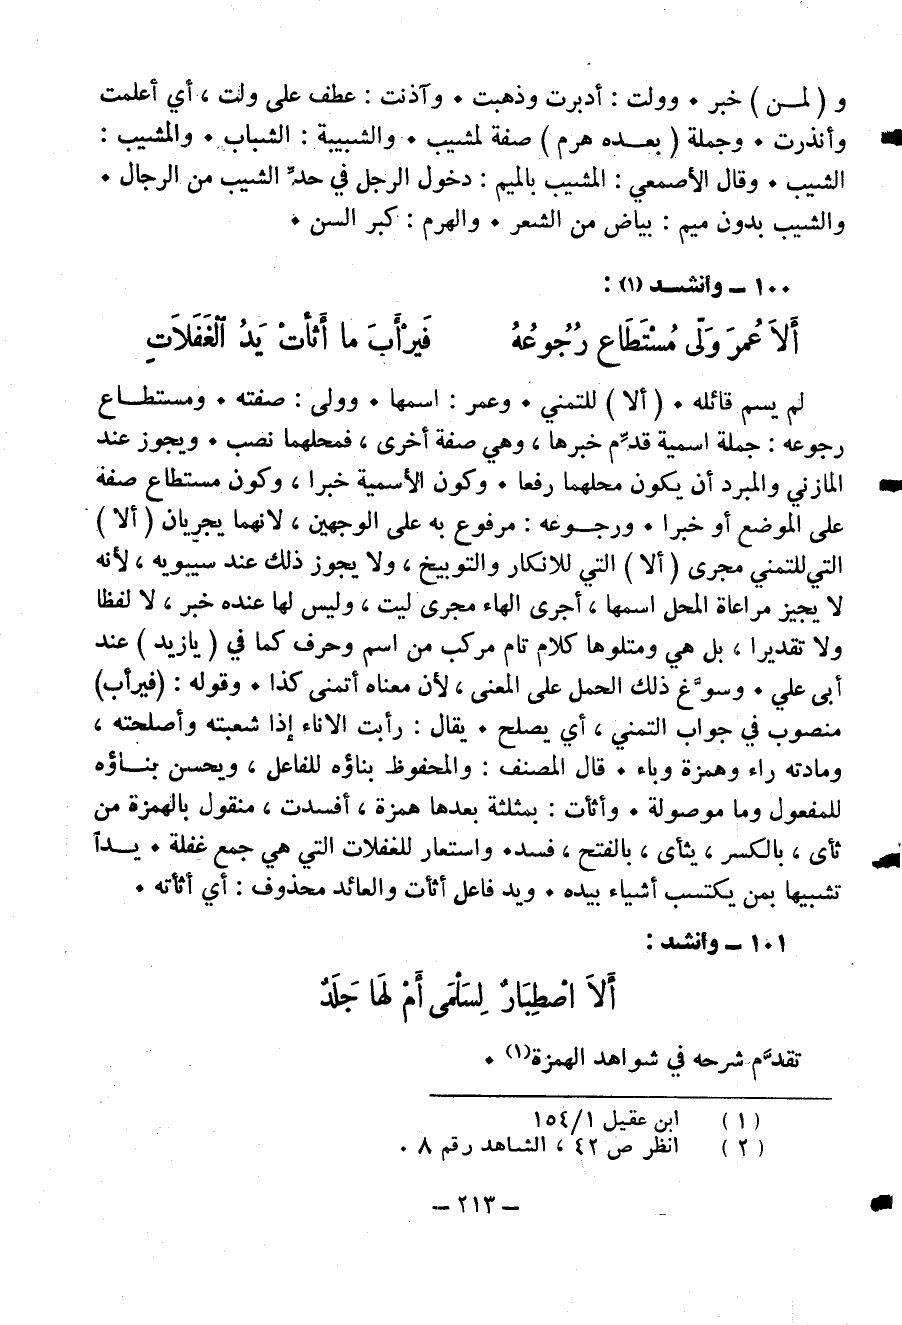 و ( لمـــن ) خبر ٠ وولت : أدبرت وذهبت ٠ وآذنت : عطف على ولت ، أي أعلمت
وأنذرت ٠ وجملة ( بعـــده هرم ) صفة لمشيب ٠ والشبيبة : الشباب ٠ والمشيب :
الشيب ٠ وقال الأصمعي : المشيب بالميم : دخول الرجل في حدّ الشيب من الرجال ٠
والشيب بدون ميم : بياض من الشعر ٠ والهرم : كبر السن ٠
١٠٠ ـ وأنشـــد (١) :
أَلاَ عُمرَ وَلَّى مُسْتَطَاع رُجُوعُهُ فَيرْأَبَ ما أَثأَتْ يَدُ الْغَفَلَاتِ
لم يسم قائله ٠ ( ألا ) للتمني ٠ وعمر : اسمها ٠ وولى : صفته ٠ ومستطــاع
رجوعه : جملة اسمية قدّم خبرها ، وهي صفة أخرى ، فمحلهما نصب ٠ ويجوز عند
المازني والمبرد أن يكون محلهما رفعا ٠ وكون الأسمية خبرا ، وكون مستطاع صفة
على الموضع أو خبرا ٠ ورجـــوعه : مرفوع به على الوجهين ، لانهما يجريان ( ألا )
التي للتمني مجرى ( ألا ) التي للانكار والتوبيخ ، ولا يجوز ذلك عند سيبويه ، لأنه
لا يجيز مراعاة المحل اسمها ، أجرى الهاء مجرى ليت ، وليس لها عنده خبر ، لا لفظا
ولا تقديرا ، بل هي ومتلوها كلام تام مركب من اسم وحرف كما في ( يازيد ) عند
أبى علي ٠ وسوّغ ذلك الحمل على المعنى ، لأن معناه أتمنى كذا ٠ وقوله : (فيرأب)
منصوب في جواب التمني ، أي يصلح ٠ يقال : رأبت الاناء إذا شعبته وأصلحته ،
ومادته راء وهمزة وباء ٠ قال المصنف : والمحفوظ بناؤه للفاعل ، ويحسن بنــاؤه
للمفعول وما موصولة ٠ وأثأت : بمثلثة بعدها همزة ، أفسدت ، منقول بالهمزة من
ثأى ، بالكسر ، يثأى ، بالفتح ، فسد٠ واستعار للغفلات التي هي جمع غفلة ٠ يـــداً
تشبيها بمن يكتسب أشياء بيده ٠ ويد فاعل أثأت والعائد محذوف : أي أثأته ٠
١٠١ ـ وأنشد :
أَلاَ اصْطِبَارٌ لِسَلْمَى أَمْ لَهَا جَلَدٌ
تقدّم شرحه في شواهد الهمزة(١) ٠
( ١ ) ابن عقيل ١/١٥٤
( ٢ ) انظر ص ٤٢ ، الشاهد رقم ٨ .
ـ ٢١٣ ـ